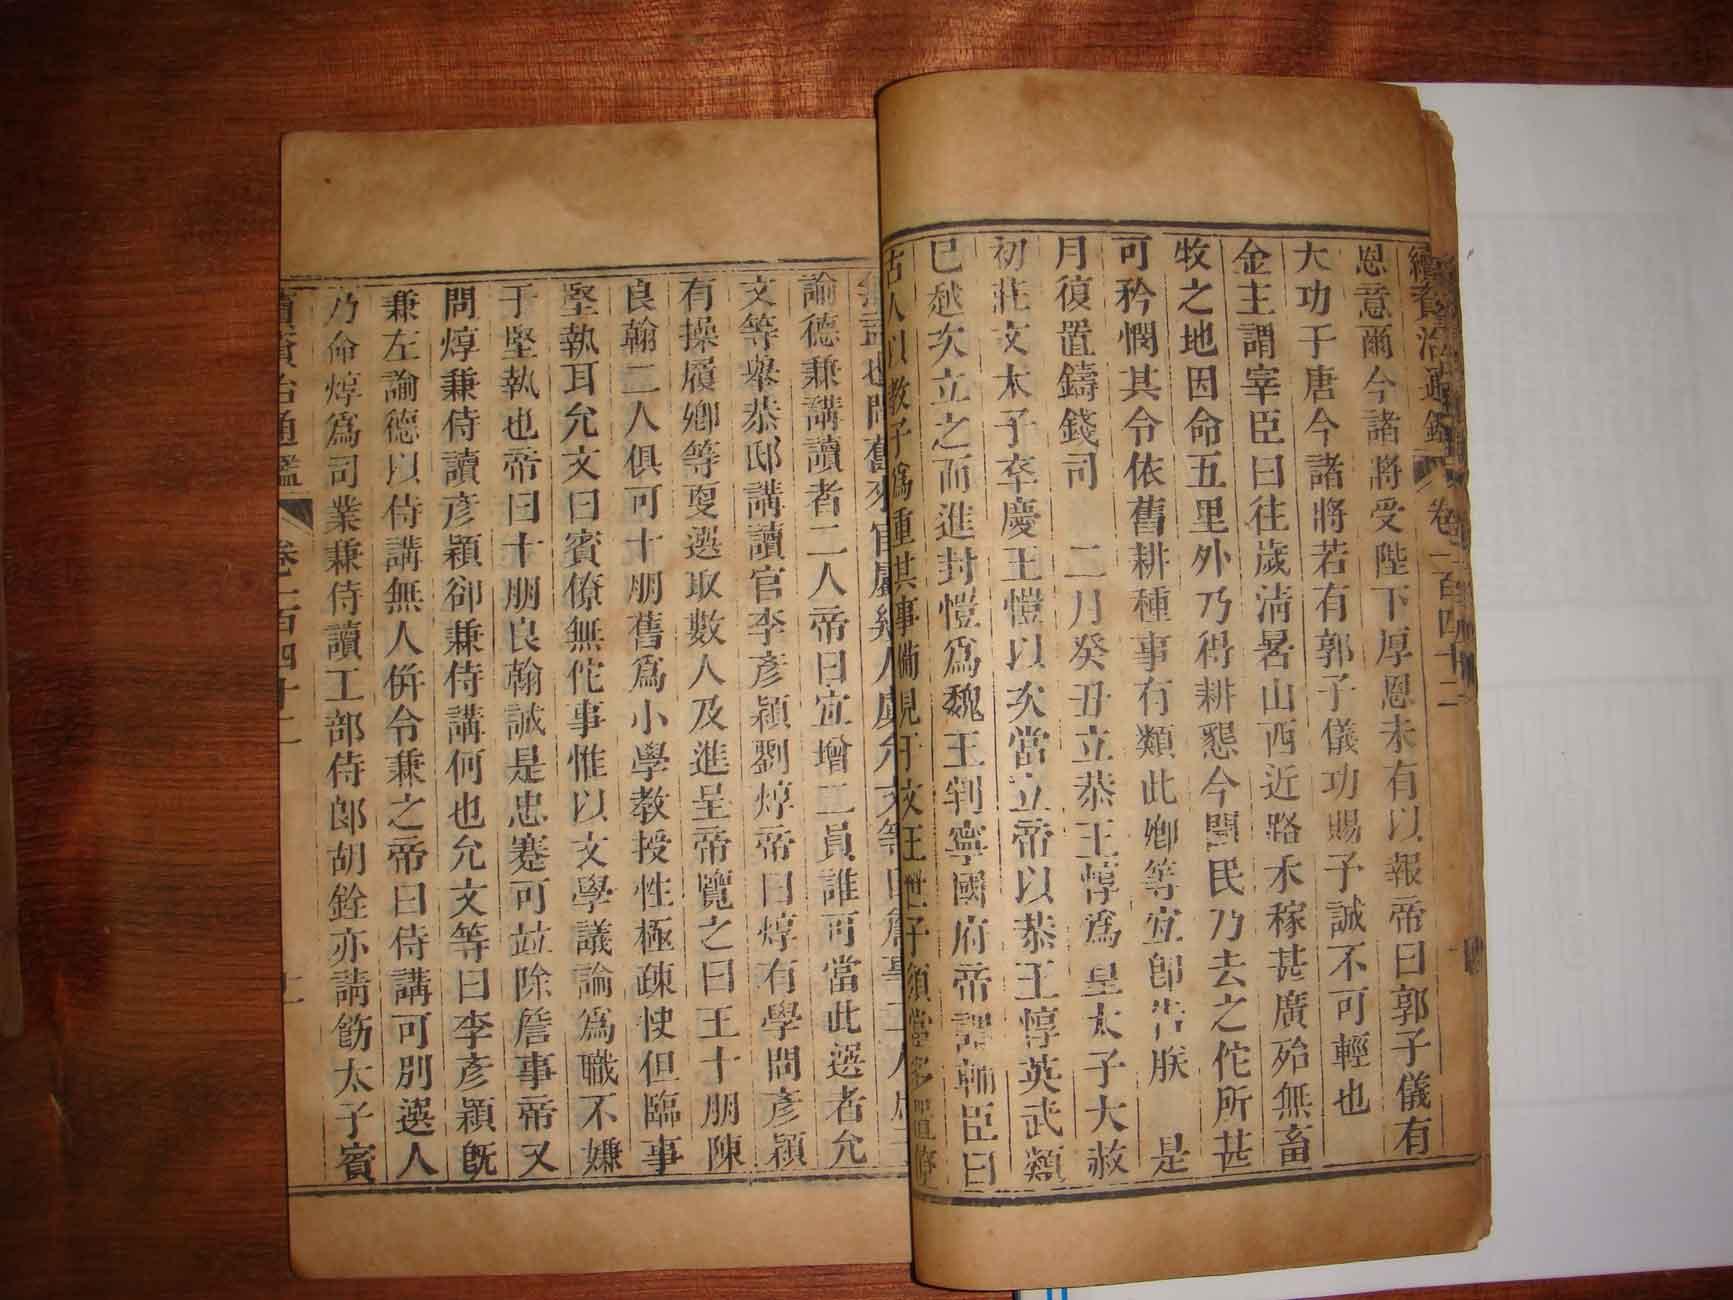 續資治通鑑 卷一百四十二
恩意爾今諸將受陛下厚恩未有以報帝曰郭子儀有
大功于唐今諸將若有郭子儀功賜予誠不可輕也
金主謂宰臣曰往歲淸暑山西近路禾稼甚廣殆無畜
牧之地因命五里外乃得耕懇今聞民乃去之佗所甚
可矜憫其令依舊耕種事有類此卿等宜卽吿朕 是
月復置鑄錢司 二月癸丑立恭王惇爲皇太子大赦
初莊文太子卒慶王愷以次當立帝以恭王惇英武類
已越次立之而進封愷爲魏王判寧國府帝謂輔臣曰
古人以敎子爲重其事備見于文王世子須當多置僚
也問舊來官屬幾人虞允文等曰詹事二人
諭德兼講讀者二人帝曰宜增二員誰可當此選者允
文等舉恭邸講讀官李彥穎劉焞帝曰焞有學問彥穎
有操履卿等更選取數人及進呈帝覽之曰王十朋陳
良翰二人俱可十朋舊爲小學敎授性極疎快但臨事
堅執耳允文曰賓僚無佗事惟以文學議論爲職不嫌
于堅執也帝曰十朋良翰誠是忠蹇可竝除詹事帝又
問焞兼侍讀彥穎卻兼侍講何也允文等曰李彥穎旣
兼左諭德以侍講無人併令兼之帝曰侍講可別選人
乃命焞爲司業兼侍讀工部侍郞胡銓亦請飭太子賓
續資治通鑑 卷一百四十二